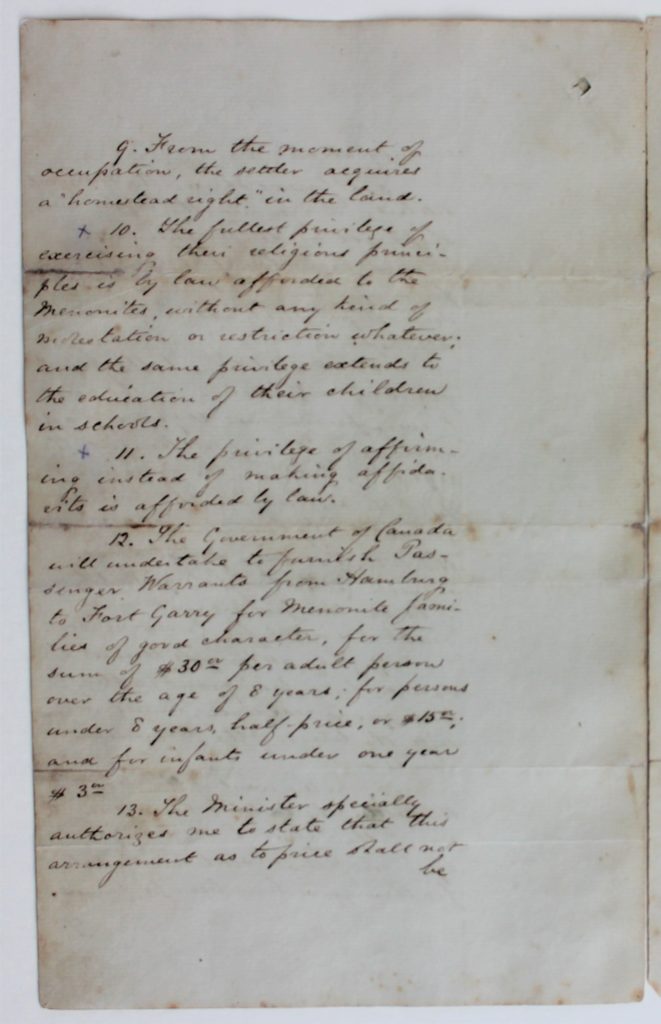 9. From the moment of
occupation, the settler acquires
a "homestead right" in the land.
+ 10. The fullest privilege of
exercising their religious princi-
ples is by law afforded to the
Menonites, without any kind of
molestation or restriction whatever;
and the same privilege extends to
the education of their children
in schools.
+ 11. The privilege of affirm-
ing instead of making affida-
vits is afforded by law.
12. The Government of Canada
will undertake to furnish Pas-
senger Warrants from Hamburg
to Fort Garry for Menonite fami-
lies of good character, for the
sum of $30 00 per adult person
over the age of 8 years; for persons
under 8 years, half-price, or $15 00;
and for infants under one year
$3 00
13. The Minister specially
authorizes me to state that this
arrangement as to price shall not
be